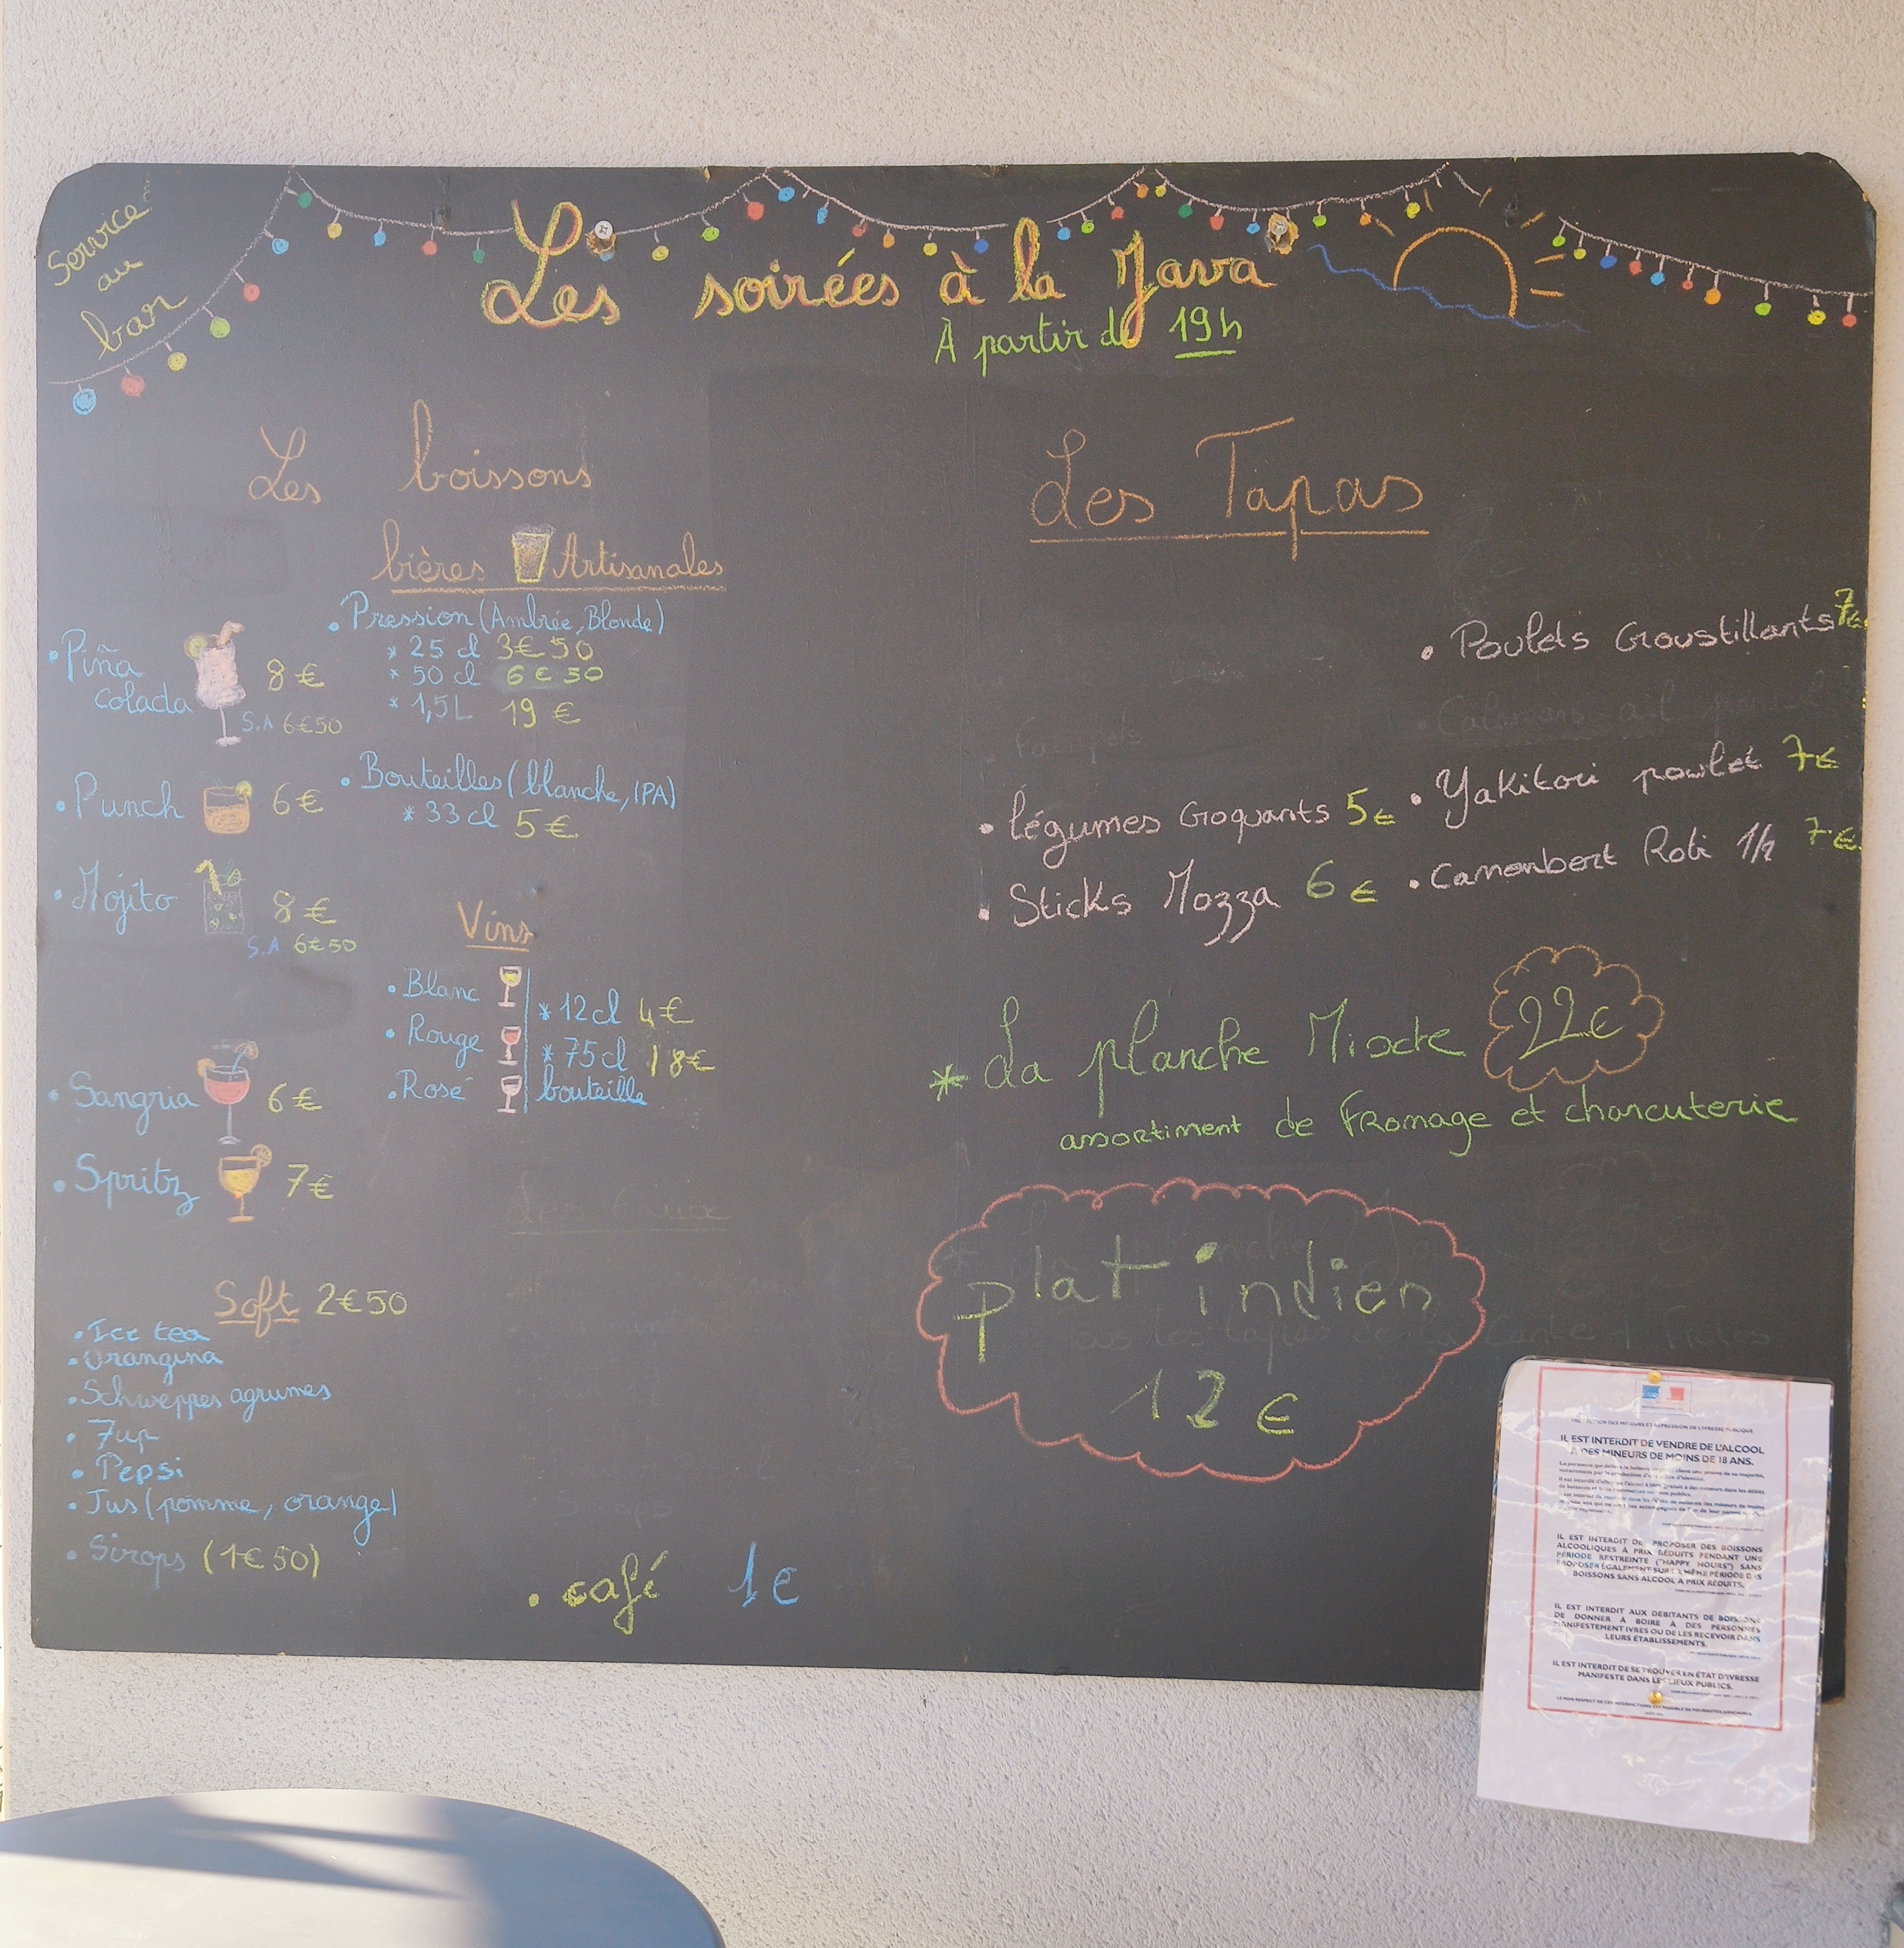 Service
au
bar
Les soirées à la Java
À partir de 19h
Les boissons
bières Artisanales
• Pression (Ambrée, Blonde)
* 25 cl 3€50
* 50 cl 6€50
* 1,5L 19 €
• Bouteilles (blanche, IPA)
* 33cl 5€
• Piña
Colada 8€
S.A 6€50
• Punch 6€
• Mojito 8€
S.A 6€50
• Sangria 6€
• Spritz 7€
Vins
• Blanc
• Rouge
• Rosé
* 12cl 4€
* 75cl 18€
bouteille
Les Eaux
Soft 2€50
• Ice tea
• Orangina
• Schweppes agrumes
• 7up
• Pepsi
• Jus (pomme, orange)
• Sirops (1€50)
• café 1€
Les Tapas
• Poulets Croustillants 7€
• légumes Croquants 5€
• Yakitori poulet 7€
• Sticks Mozza 6€
• Camenbert Roti 1/2 7€
* La planche Mixte 22€
assortiment de Fromage et charcuterie
plat indien
12€
IL EST INTERDIT DE VENDRE DE L'ALCOOL
À DES MINEURS DE MOINS DE 18 ANS.
IL EST INTERDIT DE PROPOSER DES BOISSONS
ALCOOLIQUES À PRIX RÉDUITS PENDANT UNE
PÉRIODE RESTREINTE ("HAPPY HOURS") SANS
PROPOSER ÉGALEMENT SUR LA MÊME PÉRIODE DES
BOISSONS SANS ALCOOL À PRIX RÉDUITS.
IL EST INTERDIT AUX DÉBITANTS DE BOISSONS
DE DONNER À BOIRE À DES PERSONNES
MANIFESTEMENT IVRES OU DE LES RECEVOIR DANS
LEURS ÉTABLISSEMENTS.
IL EST INTERDIT DE SE TROUVER EN ÉTAT D'IVRESSE
MANIFESTE DANS LES LIEUX PUBLICS.